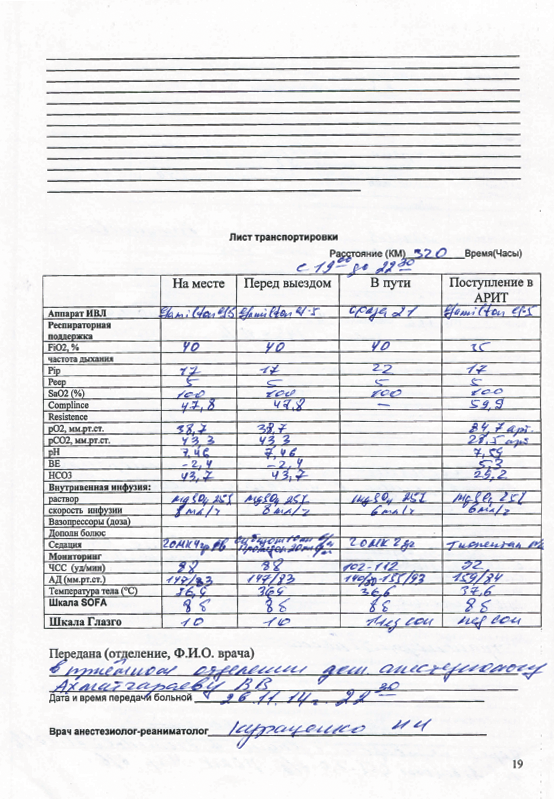 Лист транспортировки
Расстояние (КМ) 320 Время(Часы)
с 19 00 до 22 30
На месте Перед выездом В пути Поступление в АРИТ
Аппарат ИВЛ Hamilton Hamilton Hamilton
Респираторная поддержка
FiO2, % 40 40 40 35
частота дыхания
Pip 17 17 22 17
Peep 5 5 5 5
SaO2 (%) 100 100 100 100
Complince 47,8 47,8 — 59,9
Resistence
pO2, мм.рт.ст. 38,7 38,7 84,7 арт.
pCO2, мм.рт.ст. 43,3 43,3 28,5 арт
pH 7,46 7,46 7,59
BE -2,4 -2,4 5,3
HCO3 43,7 43,7 29,2
Внутривенная инфузия:
раствор MgSO4 25% MgSO4 25% MgSO4 25% MgSO4 25%
скорость инфузии 8 мл/ч 8 мл/ч 6 мл/ч 6 мл/ч
Вазопрессоры (доза)
Дополн болюс
Седация ГОМК ГОМК Тиопентал
Мониторинг
ЧСС (уд/мин) 88 88 102-112 92
АД (мм.рт.ст.) 147/83 147/83 159/84
Температура тела (°С) 36,6 366 36,6 37,6
Шкала SOFA 8б 8б 8б 8б
Шкала Глазго 10 10 мед сон мед сон
Передана (отделение, Ф.И.О. врача)
в приёмном отделении деж. анестезиологу
В В
Дата и время передачи больной 26.11.14г. 22 30
Врач анестезиолог-реаниматолог
19